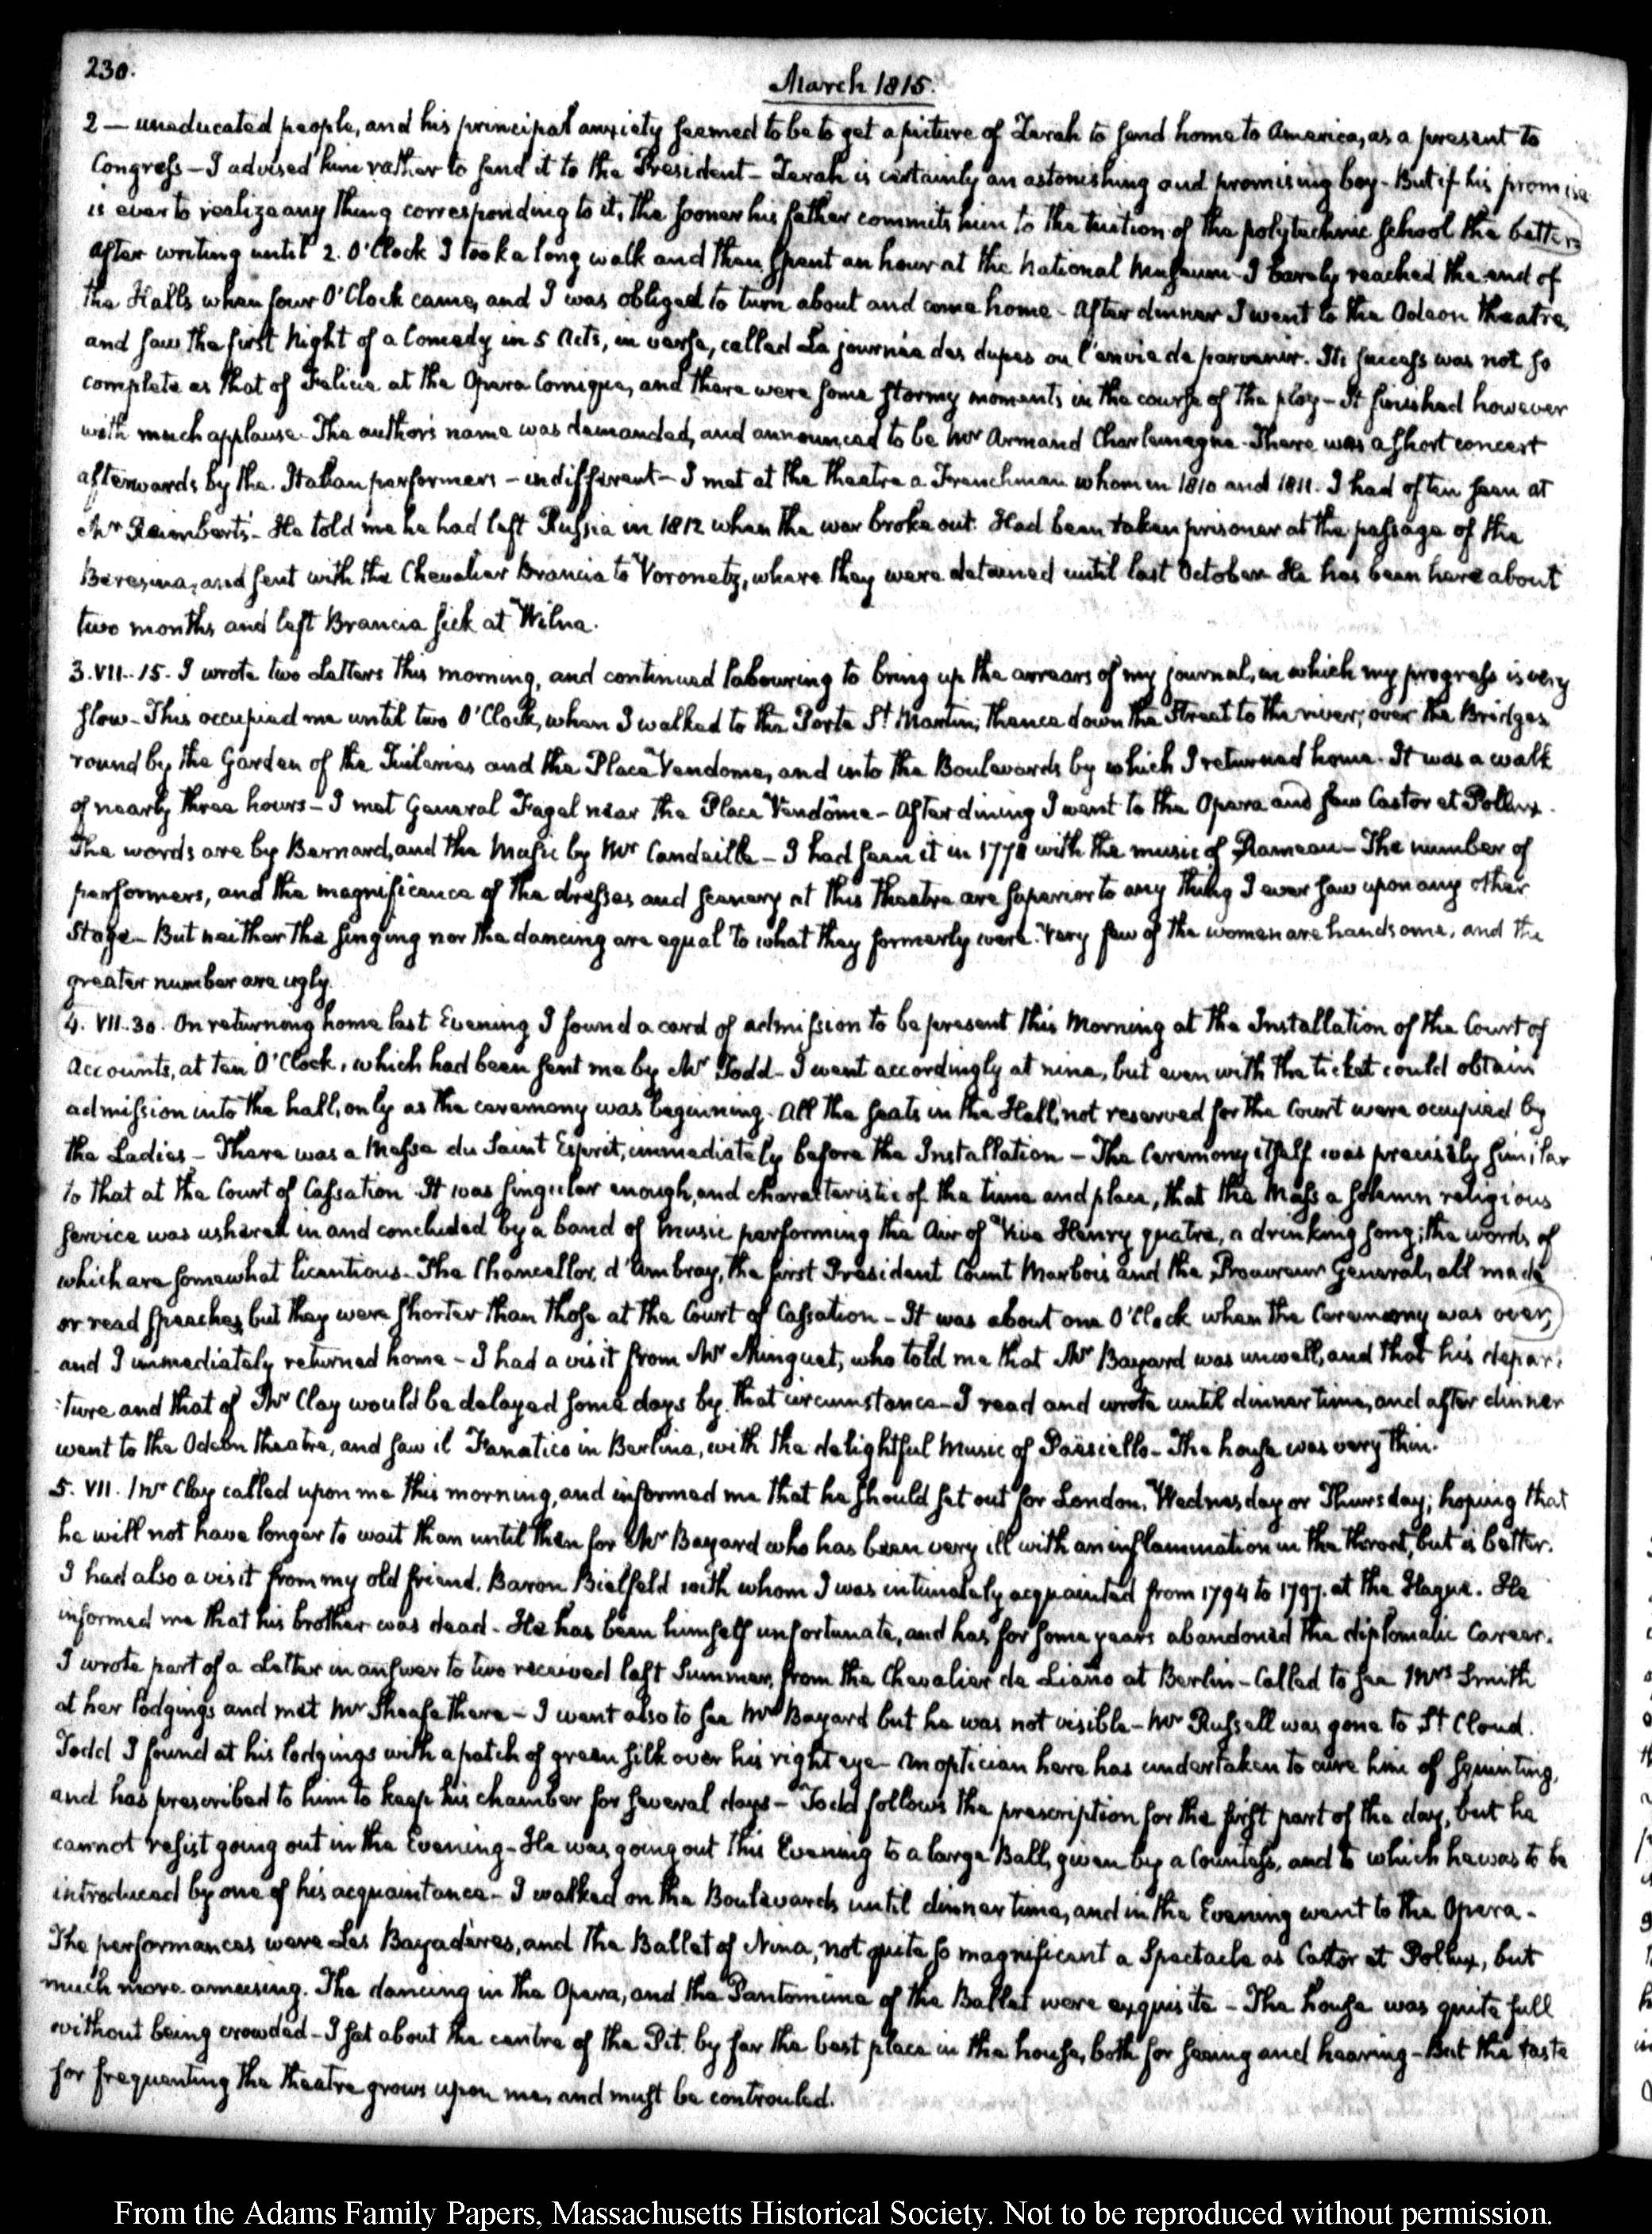 230.
March 1815.
2 — uneducated people, and his principal anxiety seemed to be to get a picture of Zerah to send home to America, as a present to
Congress — I advised him rather to send it to the President — Zerah is certainly an astonishing and promising boy — But if his promise
is ever to realize any thing corresponding to it, the sooner his father commits him to the tuition of the polytechnic school the better.
After writing until 2. O'Clock I took a long walk and then spent an hour at the National Museum — I barely reached the end of
the Halls when four O'Clock came, and I was obliged to turn about and come home — After dinner I went to the Odeon theatre,
and saw the first Night of a Comedy in 5 Acts, in verse, called La journée des dupes ou l'envie de parvenir. Its success was not so
complete as that of Felicie at the Opera Comique, and there were some stormy moments in the course of the play — It finished however
with much applause. The author's name was demanded, and announced to be Mr Armand Charlemagne. There was a short concert
afterwards by the Italian performers — indifferent — I met at the theatre a Frenchman whom in 1810 and 1811. I had often seen at
Mr Raimbert's — He told me he had left Russia in 1812 when the war broke out. Had been taken prisoner at the passage of the
Beresina, and sent with the Chevalier Brancia to Voronetz, where they were detained until last October. He has been here about
two months and left Brancia sick at Wilna.
3. VII. 15. I wrote two Letters this morning, and continued labouring to bring up the arrears of my journal, in which my progress is very
slow — This occupied me until two O'Clock, when I walked to the Porte St. Martin; thence down the Street to the river; over the Bridges
round by the Garden of the Tuileries and the Place Vendome, and into the Boulevards by which I returned home. It was a walk
of nearly three hours — I met General Fagel near the Place Vendôme — After dining I went to the Opera and saw Castor et Pollux.
The words are by Bernard, and the Music by Mr Candeille — I had seen it in 1778 with the music of Rameau — The number of
performers, and the magnificence of the dresses and scenery at this theatre are superior to any thing I ever saw upon any other
Stage — But neither the singing nor the dancing are equal to what they formerly were. Very few of the women are handsome, and the
greater number are ugly.
4. VII. 30. On returning home last Evening I found a card of admission to be present this Morning at the Installation of the Court of
Accounts, at ten O'Clock, which had been sent me by Mr Todd — I went accordingly at nine, but even with the ticket could obtain
admission into the hall, only as the ceremony was beginning. All the seats in the Hall, not reserved for the Court were occupied by
the Ladies — There was a Messe du Saint Esprit, immediately before the Installation — The Ceremony itself was precisely similar
to that at the Court of Cassation. It was singular enough, and characteristic of the time and place, that the Mass a solemn religious
service was ushered in and concluded by a band of music performing the Air of Vive Henry quatre, a drinking song; the words of
which are somewhat licentious — The Chancellor, d'Ambray, the first President Count Marbois and the Procureur General, all made
or read speeches, but they were shorter than those at the Court of Cassation — It was about one O'Clock when the Ceremony was over,
and I immediately returned home — I had a visit from Mr Minguet, who told me that Mr Bayard was unwell, and that his depar-
:ture and that of Mr Clay would be delayed some days by that circumstance — I read and wrote until dinner time, and after dinner
went to the Odeon theatre, and saw il Fanatico in Berlina, with the delightful Music of Paësiello — The house was very thin.
5. VII. Mr Clay called upon me this morning, and informed me that he should set out for London, Wednesday or Thursday; hoping that
he will not have longer to wait than until then for Mr Bayard who has been very ill with an inflammation in the throat, but is better.
I had also a visit from my old friend, Baron Bielfeld with whom I was intimately acquainted from 1794 to 1797. at the Hague. He
informed me that his brother was dead — He has been himself unfortunate, and has for some years abandoned the diplomatic Career.
I wrote part of a Letter in answer to two received last Summer, from the Chevalier de Liaño at Berlin — Called to see Mrs Smith
at her lodgings and met Mr Sheafe there — I went also to see Mr Bayard but he was not visible — Mr Russell was gone to St Cloud.
Todd I found at his lodgings with a patch of green silk over his right eye — An optician here has undertaken to cure him of squinting,
and has prescribed to him to keep his chamber for several days — Todd follows the prescription for the first part of the day, but he
cannot resist going out in the Evening — He was going out this Evening to a large Ball, given by a Countess, and to which he was to be
introduced by one of his acquaintance — I walked on the Boulevards until dinner time, and in the Evening went to the Opera —
The performances were Les Bayadères, and the Ballet of Nina, not quite so magnificent a Spectacle as Castor et Pollux, but
much more amusing. The dancing in the Opera, and the Pantomime of the Ballet were exquisite — The house was quite full
without being crowded — I sat about the centre of the Pit. by far the best place in the house, both for seeing and hearing — But the taste
for frequenting the theatre grows upon me, and must be controuled.
From the Adams Family Papers, Massachusetts Historical Society. Not to be reproduced without permission.